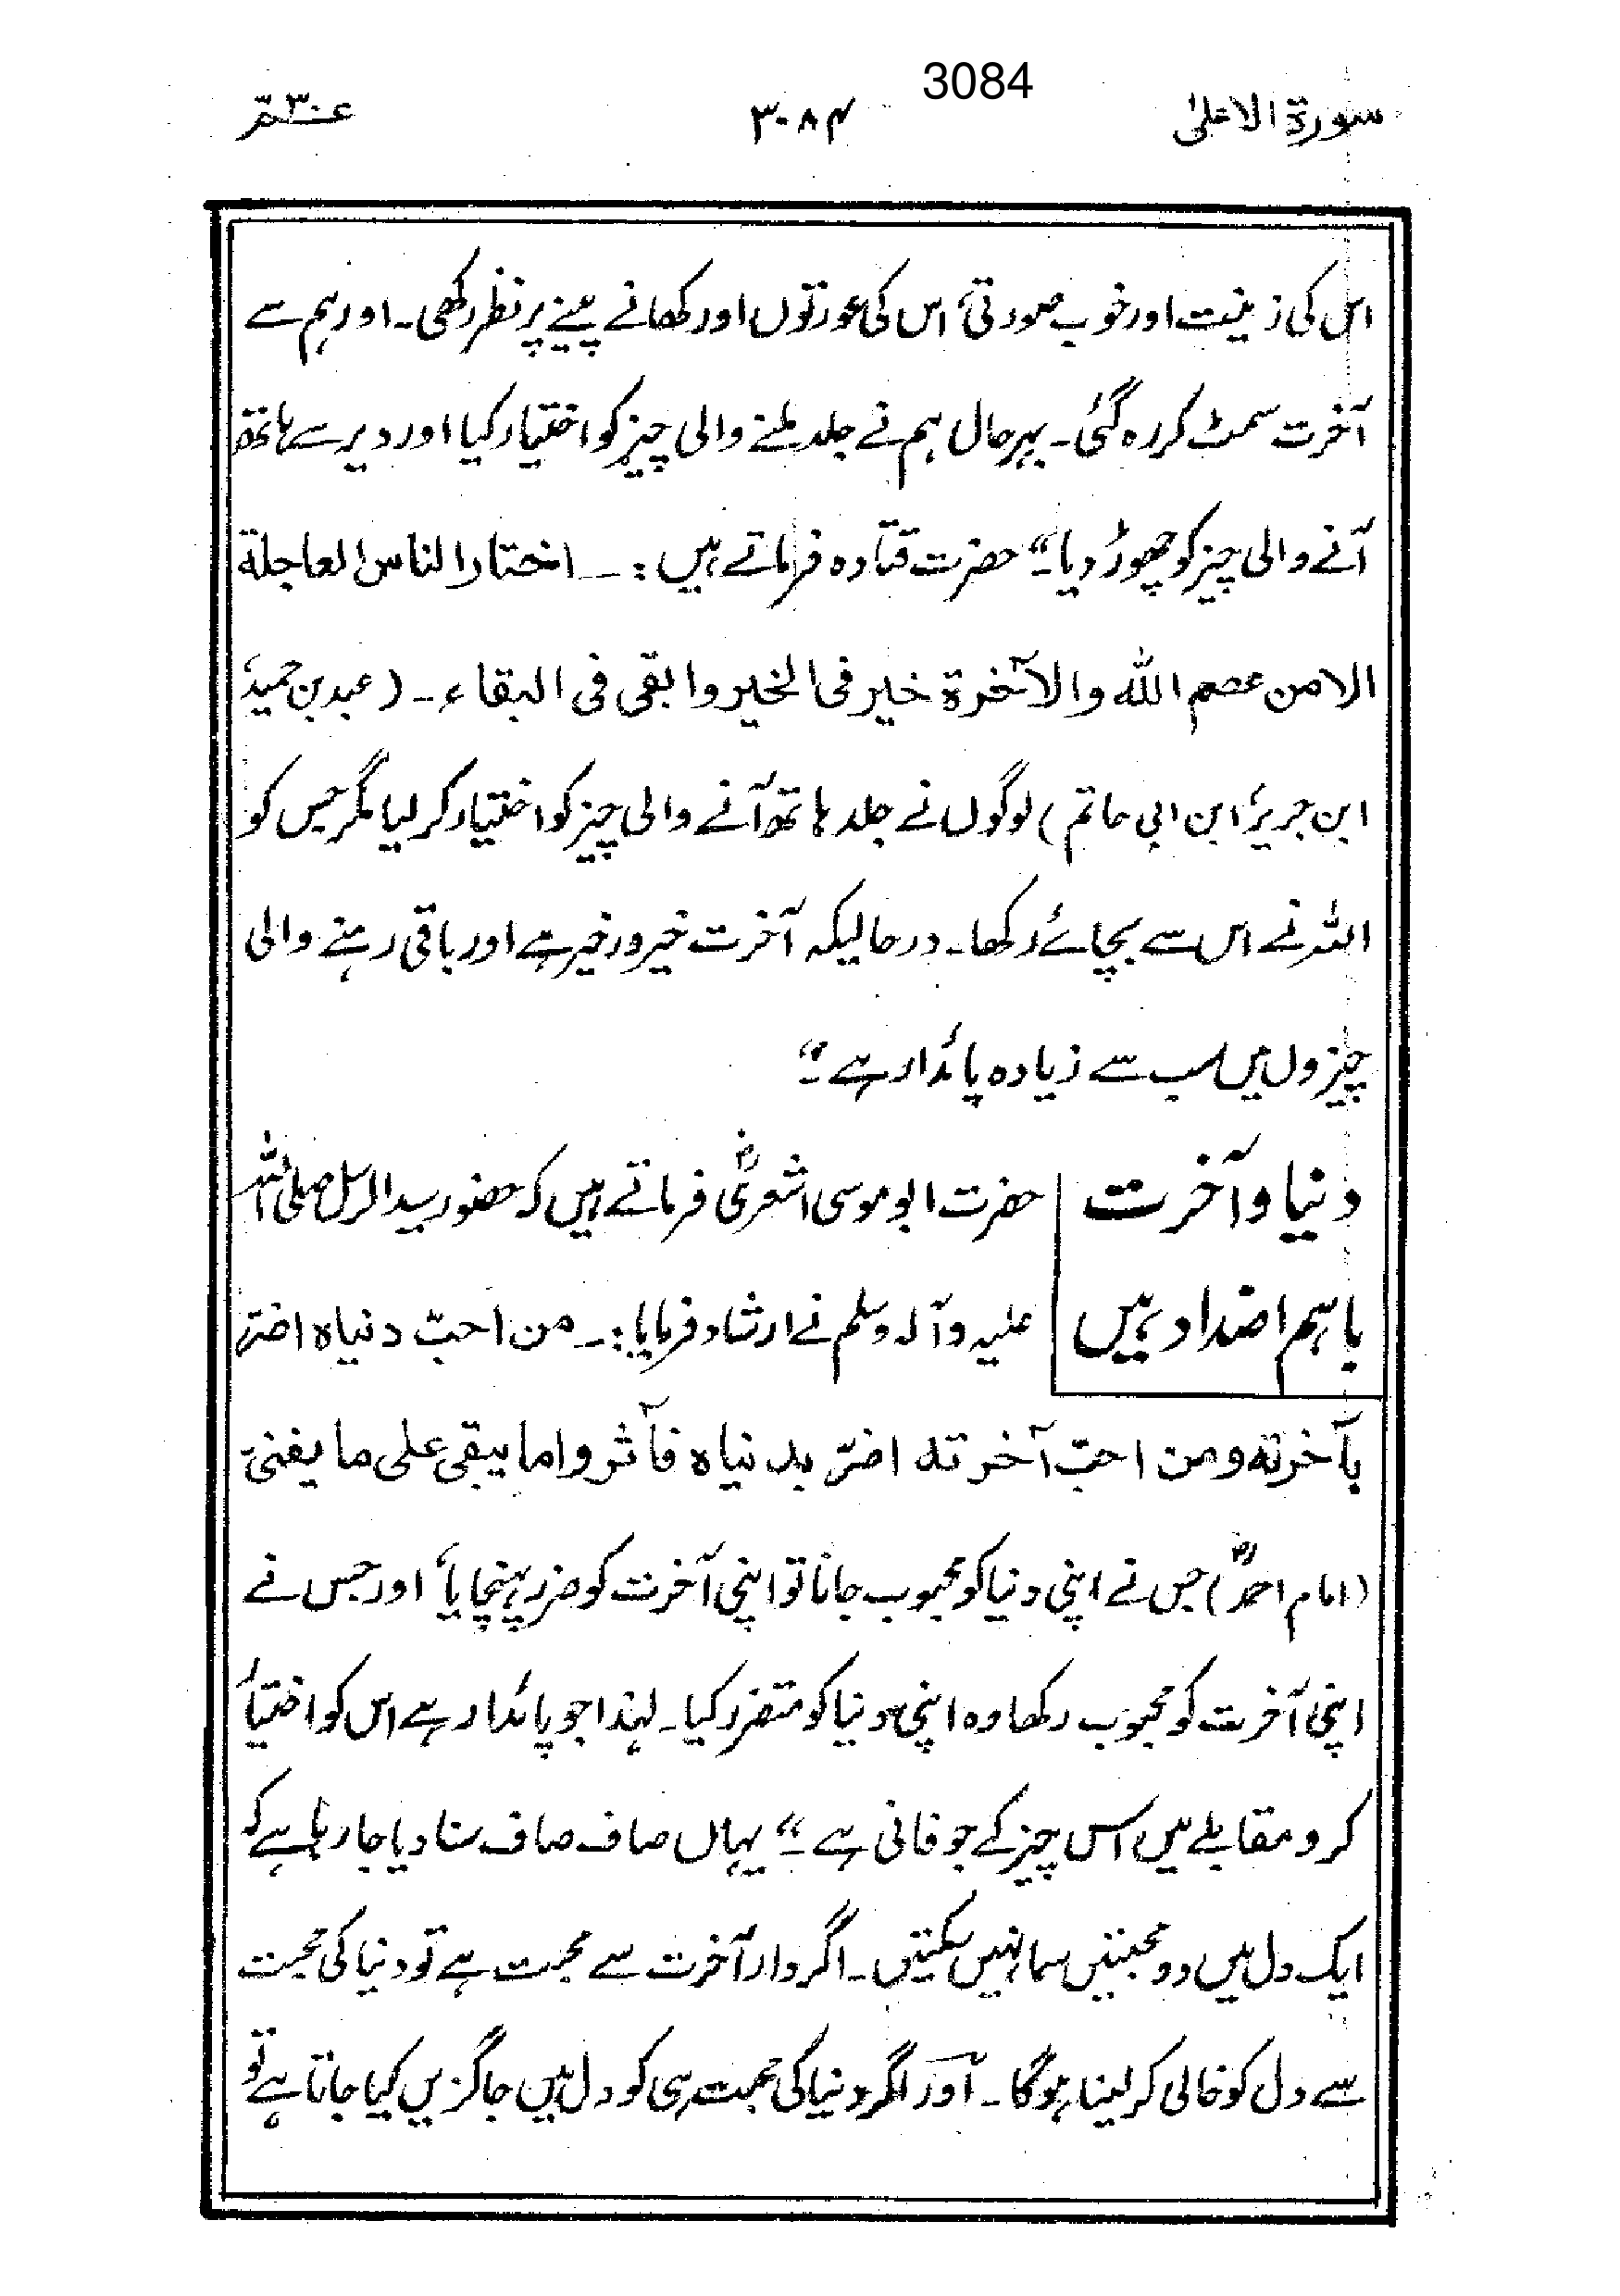 3084
سورۃ الاعلیٰ ۳۰۸۴ عـــمّ ۳۰
اس کی زینت اور خوب صورتی، اس کی عورتوں اور کھانے پینے پر نظر رکھی۔ اور ہم سے
آخرت سمٹ کر رہ گئی۔ بہرحال ہم نے جلد ملنے والی چیز کو اختیار کیا اور دیر سے ہاتھ
آنے والی چیز کو چھوڑ دیا۔“ حضرت قتادہ فرماتے ہیں :۔ اختار الناس العاجلة
الا من عصم اللّٰه والآخرة خير فى الخير وابقى فى البقاء۔ (عبد بن حمید،
ابن جریر، ابن ابی حاتم) لوگوں نے جلد ہاتھ آنے والی چیز کو اختیار کر لیا مگر جس کو
اللہ نے اس سے بچائے رکھا۔ درحالیکہ آخرت خیر ور خیر ہے اور باقی رہنے والی
چیزوں میں سب سے زیادہ پائدار ہے۔“
دنیا و آخرت حضرت ابو موسی اشعریؓ فرماتے ہیں کہ حضور سید الرسل صلی اللہ
باہم اضداد ہیں علیہ وآلہ وسلم نے ارشاد فرمایا :۔ من احبّ دنياه اضرّ
بآخرته ومن احبّ آخرته اضرّ بدنياه فآثروا ما يبقى على ما يفنى۔
(امام احمدؒ) جس نے اپنی دنیا کو محبوب جانا تو اپنی آخرت کو ضرر پہنچایا، اور جس نے
اپنی آخرت کو محبوب رکھا وہ اپنی دنیا کو متضرر کیا۔ لہٰذا جو پائدار ہے اس کو اختیار
کرو مقابلے میں اس چیز کے جو فانی ہے۔“ یہاں صاف صاف سنا دیا جا رہا ہے کہ
ایک دل میں دو محبتیں سما نہیں سکتیں۔ اگر دار آخرت سے محبت ہے تو دنیا کی محبت
سے دل کو خالی کر لینا ہوگا۔ اور اگر دنیا کی محبت ہی کو دل میں جاگزیں کیا جاتا ہے تو